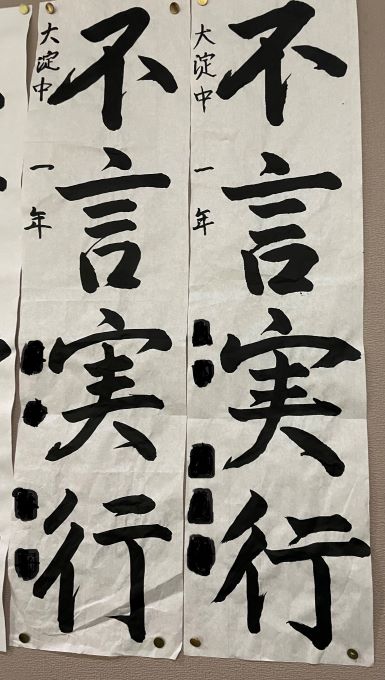 不言実行
大淀中 一年
不言実行
大淀中 一年